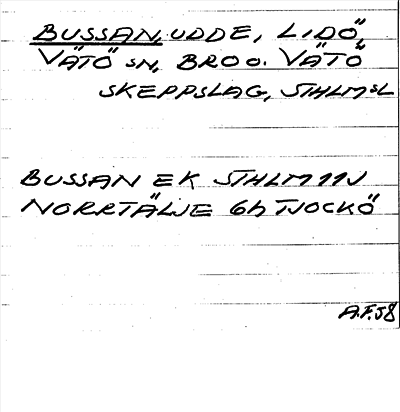 BUSSAN, UDDE, LIDÖ,
VÄTÖ SN, BRO O. VÄTÖ
SKEPPSLAG, STHLMSL
BUSSAN EK STHLM 11J
NORRTÄLJE 6h TJOCKÖ
A.F.58